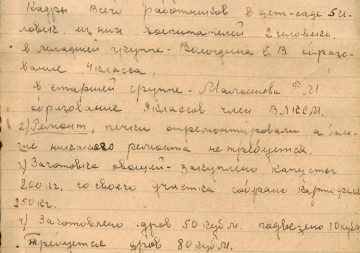 Кадры Всего работников в дет-саде 5 че
ловек из них воспитателей 2 человека,
в младшей группе - Вологдина Е. В. образо-
вание 4 класса,
в старшей группе - Р. И
образование 9 классов член ВЛКСМ.
2) Ремонт, печки отремонтировали а более
никакого ремонта не требуется.
3) Заготовка овощей - закуплено капусты
200 кг, со своего участка собрано картофеля
250 кг.
4) Заготовлено дров 50 кубм. подвезено 10 кубм
Требуется дров 80 кубм.